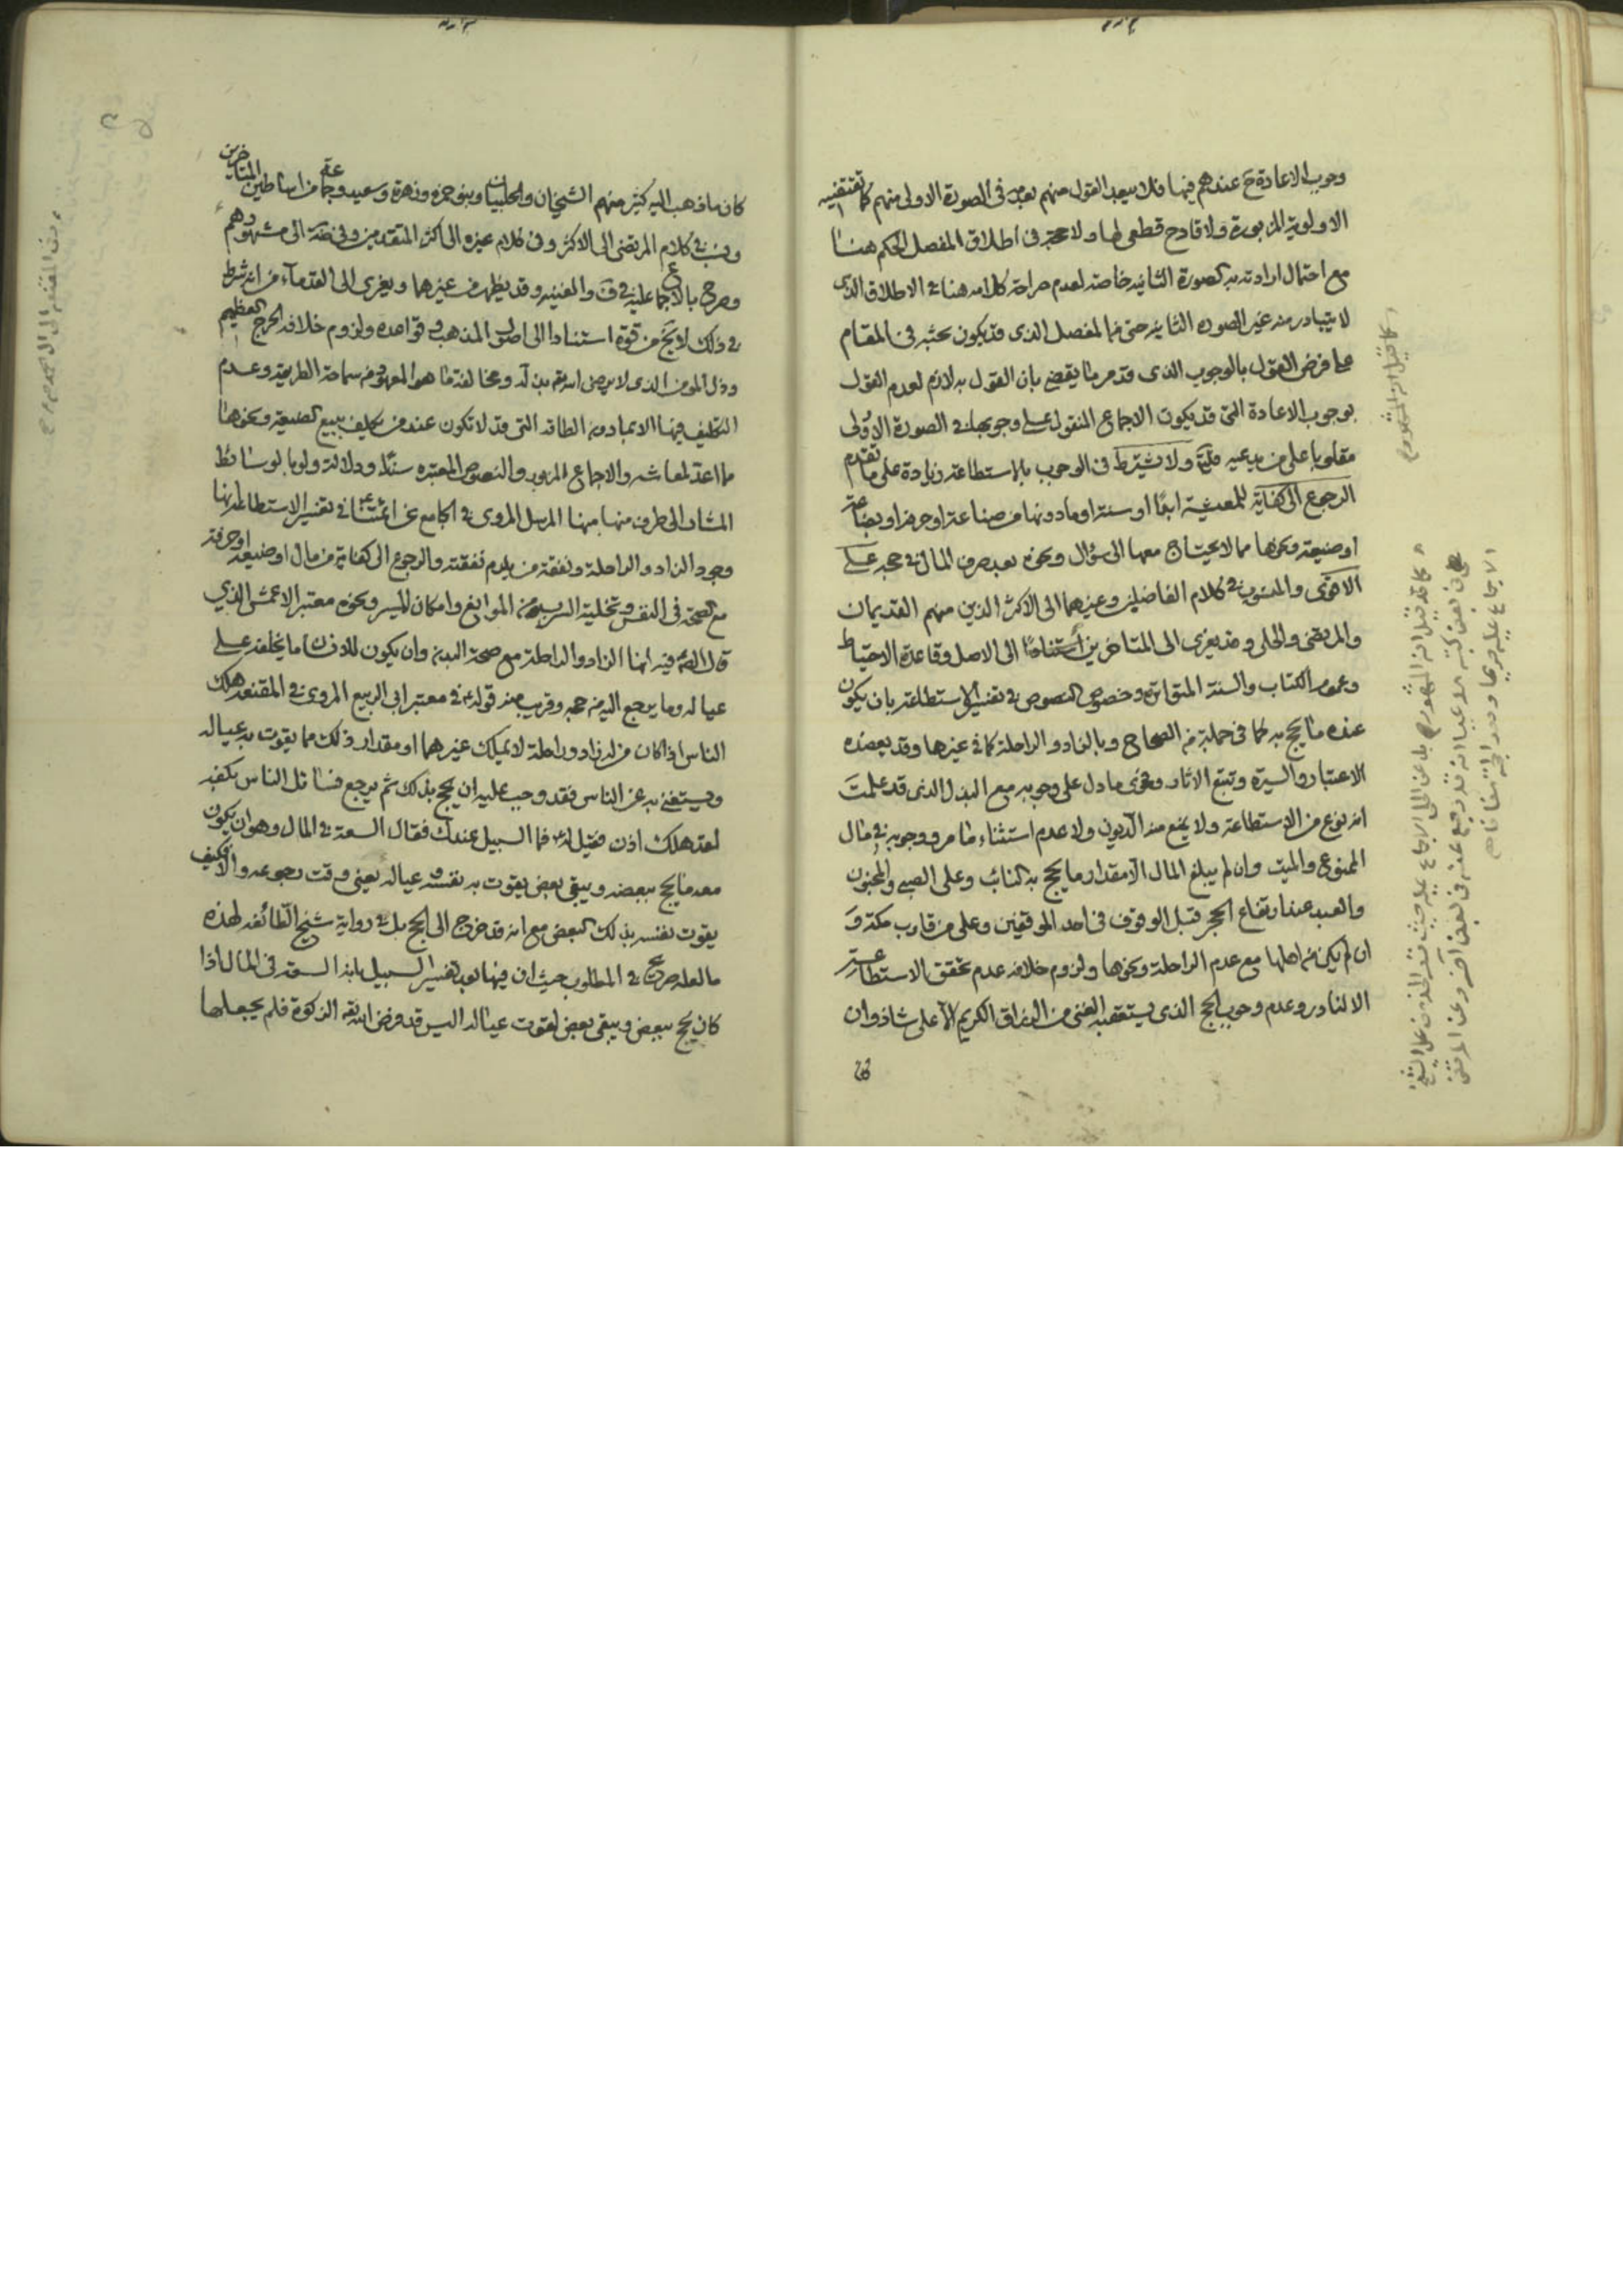 وجوب الاعادة ح عندهم فيها فلا يبعد القول منهم بعدمه في الصورة الاولى منهم كما تقتضيه
الاولوية المزبورة ولا قادح قطعي لها ولا حجة في اطلاق المفصل الحكم هنا
مع احتمال ارادته به الصورة الثانية خاصة لعدم صراحة كلامه هنا في الاطلاق الذي
لا يتبادر منه غير الصورة الثانية حتى من المفصل الذي قد يكون بحثه في المقام
على فرض القول بالوجوب الذي قد مر ما يقضي بان القول به لازم لعدم القول
بوجوب الاعادة التي قد يكون الاجماع المنقول على وجوبها في الصورة الاولى
مقلوبا على من يدعيه ولا يشترط في الوجوب بالاستطاعة زيادة على ما تقدم
الرجوع الى كفاية للمعيشة ابدًا او سنة او ما دونها من صناعة او حرفة او بضاعة
او ضيعة ونحوها مما لا يحتاج معها الى سؤال ونحوه بعد صرف المال في حجه على
الاقوى والمنسوب في كلام الفاضلين وغيرهما الى الاكثر الذين منهم القديمان
والمرتضى والحلي وقد يعزى الى المتاخرين استنادًا الى الاصل وقاعدة الاحتياط
وعموم الكتاب والسنة المتواترة وخصوص النصوص في تفسير الاستطاعة بان يكون
عنده ما يحج به كما في جملة من الصحاح وبالزاد والراحلة كما في غيرها وقد يعضده
الاعتبار والسيرة وتتبع الاثار وفحوى ما دل على وجوبه مع البذل الذي قد علمت
انه نوع من الاستطاعة ولا يمنع منه الديون ولا عدم استثناء ما مر ووجوبه في مال
الممنوع والميت وان لم يبلغ المال الا مقدار ما يحج به النائب وعلى الصبي والمجنون
والعبد عند ارتفاع الحجر قبل الوقوف في احد الموقفين وعلى من قارب مكة و
ان لم يكن من اهلها مع عدم الراحلة ونحوها ولزوم خلافه عدم تحقق الاستطاعة
الا لنادر وعدم وجوب الحج الذي يستعقبه الغنى من الرزاق الكريم الا على شاذ وان
كان ما ذهب اليه كثير منهم الشيخان والحلبيان وبنو حمزة وزهرة وسعيد وجماعة من اساطين المتاخرين
ونسب في كلام المرتضى الى الاكثر وفي كلام غيره الى اكثر المتقدمين وفي ضة الى مشهورهم
وصرح بالاجماع عليه في ف والغنية وقد يظهر من غيرهما ويعزى الى القدماء من انه شرط
في ذلك لا يخ من قوة استنادا الى اصول المذهب وقواعده ولزوم خلافه الحرج العظيم
وذل المؤمن الذي لا يرضى الله تعالى به ومخالفة ما هو المعهود من سماحة الطريقة وعدم
التكليف فيها الا بما دون الطاقة التي قد لا تكون عند من يكلف ببيع الضيعة ونحوها
مما اعد لمعاشه والاجماع المزبور والنصوص المعتبرة سندًا ودلالة ولو بالوسائط
المشار الى طرف منها منها المرسل المروي في الجامع عن ائمتنا في تفسير الاستطاعة انها
وجود الزاد والراحلة ونفقة من يلزم نفقته والرجوع الى كفاية من مال او ضيعة او حرفة
مع الصحة في النفس وتخلية السرب من الموانع وامكان المسير ونحوه معتبر الاعمش الذي
قال الص فيه انها الزاد والراحلة مع صحة البدن وان يكون للانسان ما يخلفه على
عياله وما يرجع اليه من حجه وقريب منه قوله في معتبر ابي الربيع المروي في المقنعة هلك
الناس اذا كان من له زاد وراحلة لا يملك غيرهما او مقدار ذلك مما يقوت به عياله
ويستغني به عن الناس فقد وجب عليه ان يحج بذلك ثم يرجع فسائل الناس بكفه
لقد هلك اذن فقيل له فما السبيل عندك فقال السعة في المال وهو ان يكون
معه ما يحج ببعضه ويبقى بعض يقوت به نفسه وعياله يعني وقت رجوعه والا كيف
يقوت نفسه بذلك البعض مع انه قد خرج الى الحج بل في رواية شيخ الطائفة لهذه
ما لعله صريح في المطلوب حيث ان فيها بعد تفسير السبيل بانه السعة في المال اذا
كان يحج ببعض ويبقى بعض لقوت عياله اليس قد فرض الله تعالى الزكوة فلم يجعلها